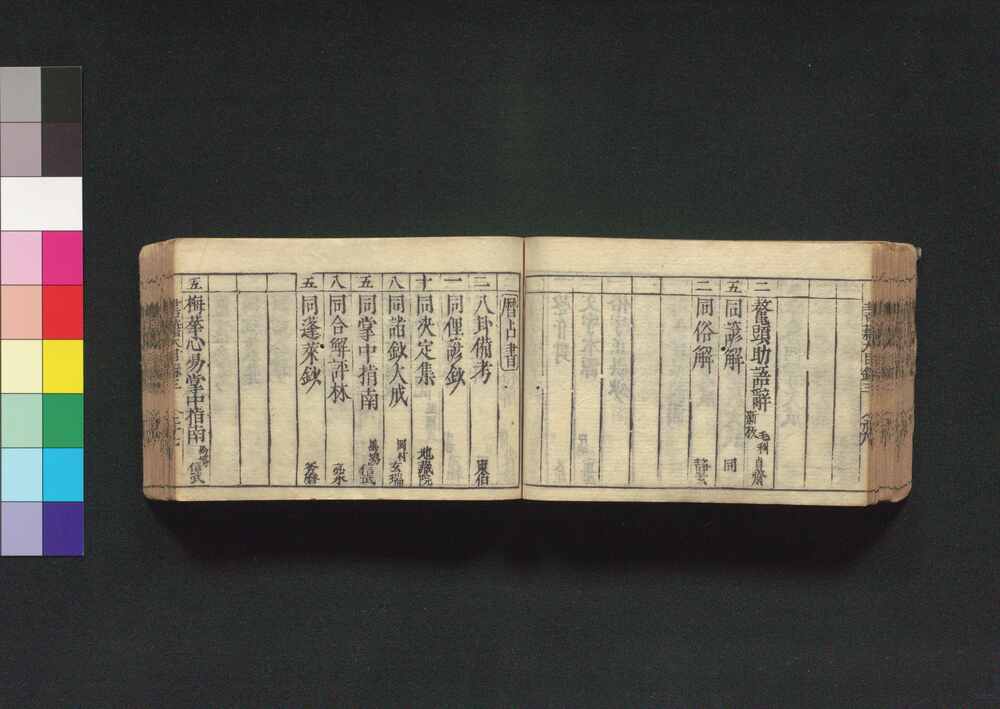 二 鼇頭助語辭 新板 毛利貞齋
五 同諺解 同
二 同俗解 靜玄
曆占書
三 八卦備考 東伯
一 同俚諺鈔
十 同決定集 地藏院
八 同諸鈔大成 岡村玄瑞
五 同掌中指南 馬場信武
八 同合解評林
五 同蓬萊鈔
五 梅華心易掌中指南 馬場信武